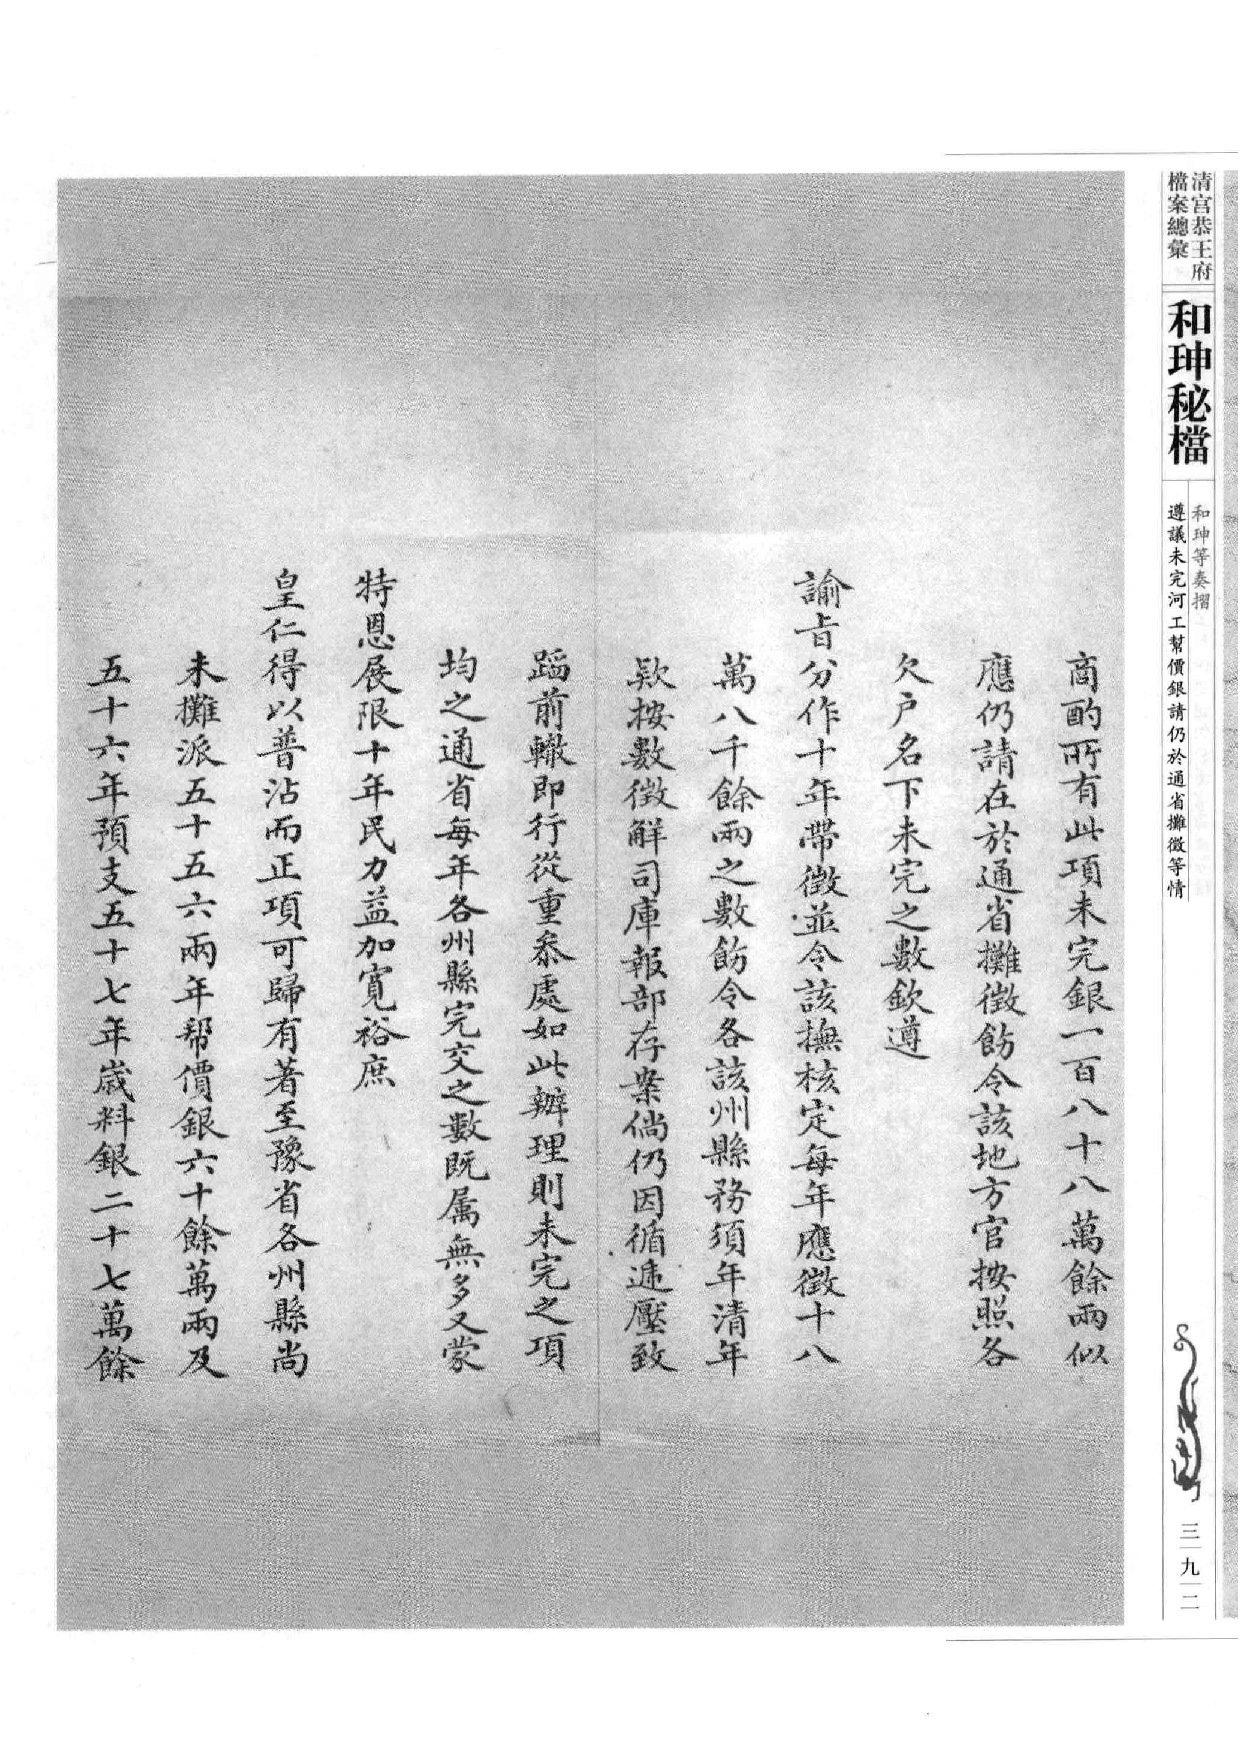 清宫恭王府
檔案總彙
和珅秘檔
和珅等奏摺
遵議未完河工幫價銀請仍於通省攤徵等情
三九二
商酌所有此項未完銀一百八十八萬餘兩似
應仍請在於通省攤徵飭令該地方官按照各
欠户名下未完之數欽遵
諭旨分作十年帶徵並令該撫核定每年應徵十八
萬八千餘兩之數飭令各該州縣務須年清年
欵按數徵解司庫報部存案倘仍因循遞壓致
蹈前轍即行從重叅處如此辦理則未完之項
均之通省每年各州縣完交之數既属無多又蒙
特恩展限十年民力益加寬裕庶
皇仁得以普沾而正項可歸有著至豫省各州縣尚
未攤派五十五六兩年帮價銀六十餘萬兩及
五十六年預支五十七年歲料銀二十七萬餘